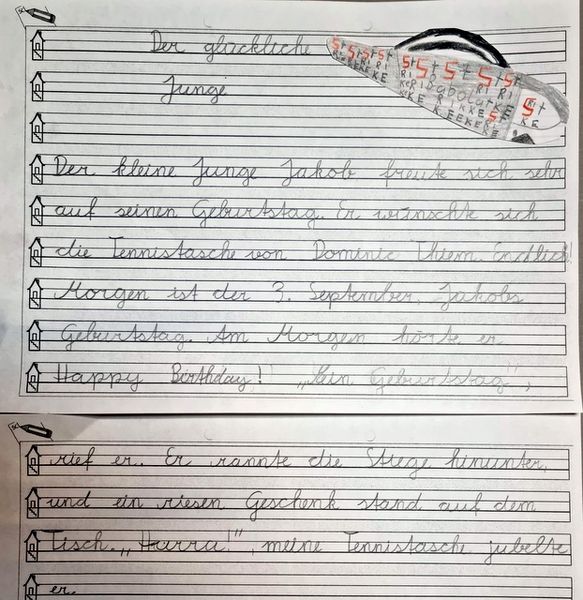 Der glückliche
Junge
Der kleine Junge Jakob freute sich sehr
auf seinen Geburtstag. Er wünschte sich
die Tennistasche von Dominic Thiem. Endlich!
Morgen ist der 3. September, Jakobs
Geburtstag. Am Morgen hörte er
Happy Birthday! „Mein Geburtstag",
rief er. Er rannte die Stiege hinunter,
und ein riesen Geschenk stand auf dem
Tisch. „Hurra!", meine Tennistasche jubelte
er.